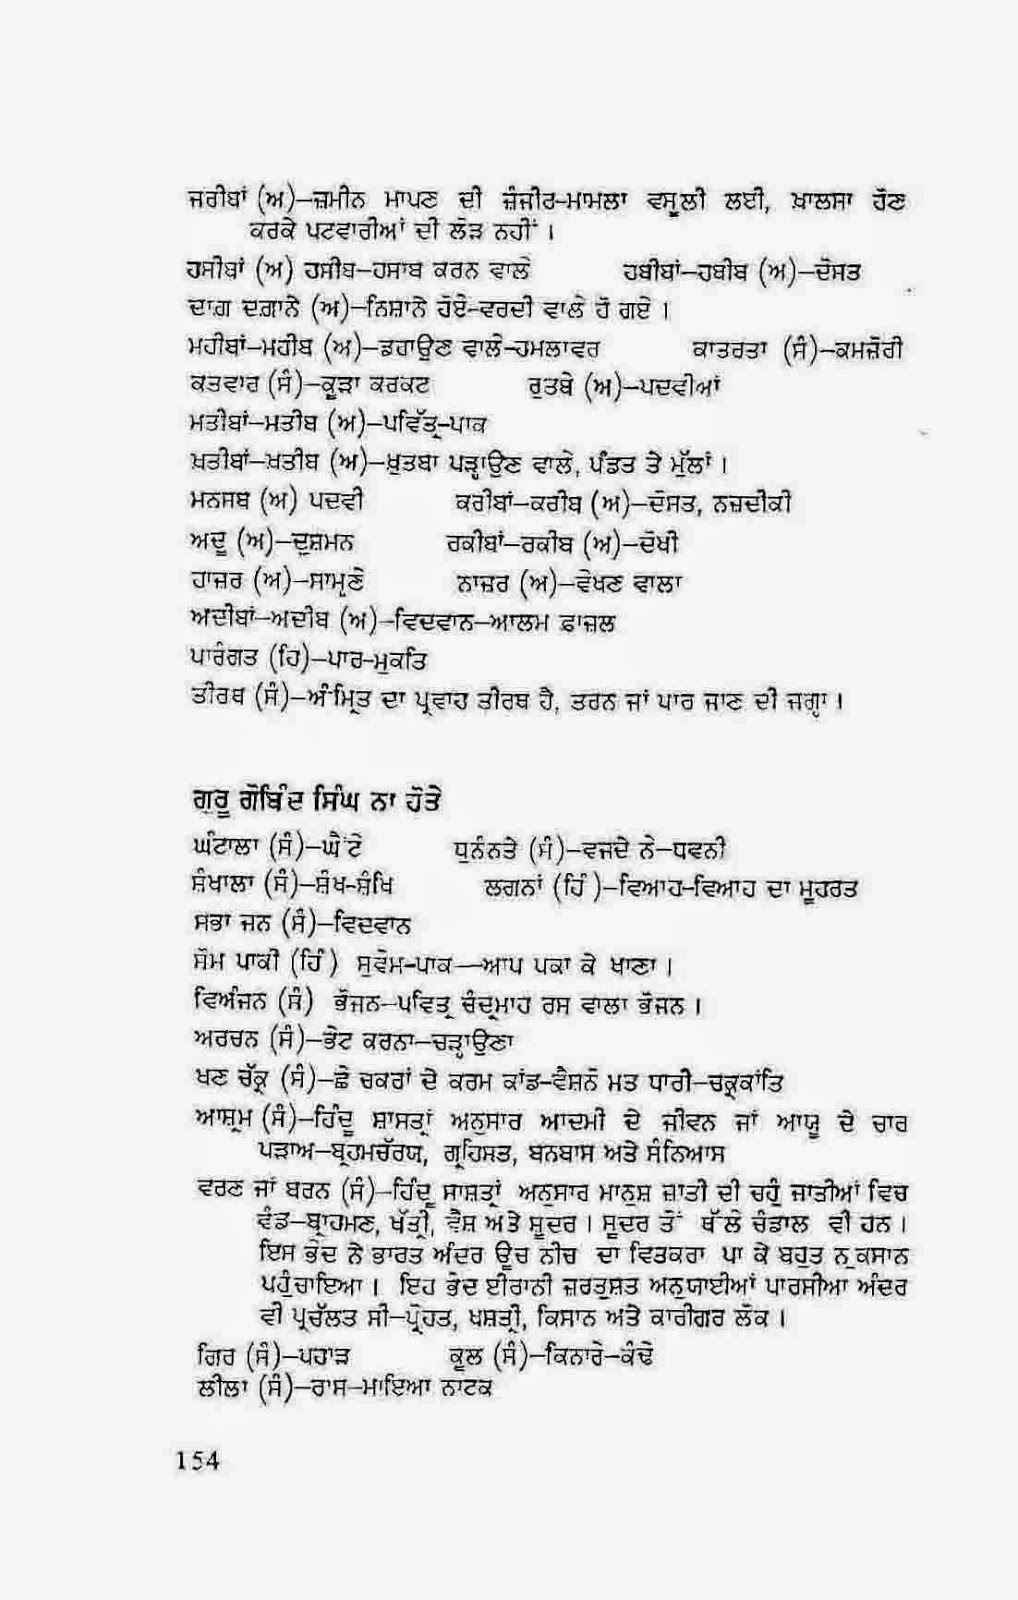 ਜਰੀਬਾਂ (ਅ)–ਜ਼ਮੀਨ ਮਾਪਣ ਦੀ ਜ਼ੰਜੀਰ-ਮਾਮਲਾ ਵਸੂਲੀ ਲਈ, ਖ਼ਾਲਸਾ ਹੋਣ
ਕਰਕੇ ਪਟਵਾਰੀਆਂ ਦੀ ਲੋੜ ਨਹੀਂ ।
ਹਸੀਬਾਂ (ਅ) ਹਸੀਬ–ਹਸਾਬ ਕਰਨ ਵਾਲੇ ਹਬੀਬਾਂ–ਹਬੀਬ (ਅ)–ਦੋਸਤ
ਦਾਗ਼ ਦਗ਼ਾਨੇ (ਅ)–ਨਿਸ਼ਾਨੇ ਹੋਏ–ਵਰਦੀ ਵਾਲੇ ਹੋ ਗਏ ।
ਮਹੀਬਾਂ–ਮਹੀਬ (ਅ)–ਡਰਾਉਣ ਵਾਲੇ-ਹਮਲਾਵਰ ਕਾਤਰਤਾ (ਸੰ)–ਕਮਜ਼ੋਰੀ
ਕਤਵਾਰ (ਸੰ)–ਕੂੜਾ ਕਰਕਟ ਰੁਤਬੇ (ਅ)–ਪਦਵੀਆਂ
ਮਤੀਬਾਂ–ਮਤੀਬ (ਅ)–ਪਵਿੱਤ੍ਰ-ਪਾਕ
ਖ਼ਤੀਬਾਂ–ਖ਼ਤੀਬ (ਅ)–ਖ਼ੁਤਬਾ ਪੜ੍ਹਾਉਣ ਵਾਲੇ, ਪੰਡਤ ਤੇ ਮੁੱਲਾਂ ।
ਮਨਸਬ (ਅ) ਪਦਵੀ ਕਰੀਬਾਂ–ਕਰੀਬ (ਅ)–ਦੋਸਤ, ਨਜ਼ਦੀਕੀ
ਅਦੂ (ਅ)–ਦੁਸ਼ਮਨ ਰਕੀਬਾਂ–ਰਕੀਬ (ਅ)–ਦੋਖੀ
ਹਾਜ਼ਰ (ਅ)–ਸਾਮ੍ਹਣੇ ਨਾਜ਼ਰ (ਅ)–ਵੇਖਣ ਵਾਲਾ
ਅਦੀਬਾਂ–ਅਦੀਬ (ਅ)–ਵਿਦਵਾਨ–ਆਲਮ ਫ਼ਾਜ਼ਲ
ਪਾਰੰਗਤ (ਹਿ)–ਪਾਰ-ਮੁਕਤਿ
ਤੀਰਥ (ਸੰ)–ਅੰਮ੍ਰਿਤ ਦਾ ਪ੍ਰਵਾਹ ਤੀਰਥ ਹੈ, ਤਰਨ ਜਾਂ ਪਾਰ ਜਾਣ ਦੀ ਜਗ੍ਹਾ ।
ਗੁਰੂ ਗੋਬਿੰਦ ਸਿੰਘ ਨਾ ਹੋਤੇ
ਘੰਟਾਲਾ (ਸੰ)–ਘੈਂਟੇ ਧੁਨੰਨਤੇ (ਸੰ)–ਵਜਦੇ ਨੇ–ਧਵਨੀ
ਸ਼ੰਖਾਲਾ (ਸੰ)–ਸ਼ੰਖ-ਸ਼ੰਖਿ ਲਗਨਾਂ (ਹਿੰ)–ਵਿਆਹ–ਵਿਆਹ ਦਾ ਮੂਹਰਤ
ਸਭਾ ਜਨ (ਸੰ)–ਵਿਦਵਾਨ
ਸੋਮ ਪਾਕੀ (ਹਿੰ) ਸੁਵੇਮ-ਪਾਕ—ਆਪ ਪਕਾ ਕੇ ਖਾਣਾ ।
ਵਿਅੰਜਨ (ਸੰ) ਭੋਜਨ–ਪਵਿਤ੍ਰ ਚੰਦ੍ਰਮਾਹ ਰਸ ਵਾਲਾ ਭੋਜਨ ।
ਅਰਚਨ (ਸੰ)–ਭੇਟ ਕਰਨਾ–ਚੜ੍ਹਾਉਣਾ
ਖਣ ਚੱਕ੍ਰ (ਸੰ)–ਛੇ ਚਕਰਾਂ ਦੇ ਕਰਮ ਕਾਂਡ–ਵੈਸ਼ਨੋ ਮਤ ਧਾਰੀ–ਚਕ੍ਰਕਾਂਤਿ
ਆਸ਼੍ਰਮ (ਸੰ)–ਹਿੰਦੂ ਸ਼ਾਸਤ੍ਰਾਂ ਅਨੁਸਾਰ ਆਦਮੀ ਦੇ ਜੀਵਨ ਜਾਂ ਆਯੂ ਦੇ ਚਾਰ
ਪੜਾਅ–ਬ੍ਰਹਮਚੱਰਯ, ਗ੍ਰਹਿਸਤ, ਬਨਬਾਸ ਅਤੇ ਸੰਨਿਆਸ
ਵਰਣ ਜਾਂ ਬਰਨ (ਸੰ)–ਹਿੰਦੂ ਸਾਸ਼ਤ੍ਰਾਂ ਅਨੁਸਾਰ ਮਾਨੁਸ਼ ਜ਼ਾਤੀ ਦੀ ਚਹੁੰ ਜਾਤੀਆਂ ਵਿਚ
ਵੰਡ–ਬ੍ਰਾਹਮਣ, ਖੱਤ੍ਰੀ, ਵੈਸ਼ ਅਤੇ ਸ਼ੂਦਰ । ਸੂਦਰ ਤੋਂ ਥੱਲੇ ਚੰਡਾਲ ਵੀ ਹਨ ।
ਇਸ ਭੇਦ ਨੇ ਭਾਰਤ ਅੰਦਰ ਊਚ ਨੀਚ ਦਾ ਵਿਤਕਰਾ ਪਾ ਕੇ ਬਹੁਤ ਨੁਕਸਾਨ
ਪਹੁੰਚਾਇਆ । ਇਹ ਭੇਦ ਈਰਾਨੀ ਜ਼ਰਤੁਸ਼ਤ ਅਨੁਯਾਈਆਂ ਪਾਰਸੀਆ ਅੰਦਰ
ਵੀ ਪ੍ਰਚੱਲਤ ਸੀ–ਪ੍ਰੋਹਤ, ਖਸ਼ਤ੍ਰੀ, ਕਿਸਾਨ ਅਤੇ ਕਾਰੀਗਰ ਲੋਕ ।
ਗਿਰ (ਸੰ)–ਪਹਾੜ ਕੂਲ (ਸੰ)–ਕਿਨਾਰੇ–ਕੰਢੇ
ਲੀਲਾ (ਸੰ)–ਰਾਸ–ਮਾਇਆ ਨਾਟਕ
154